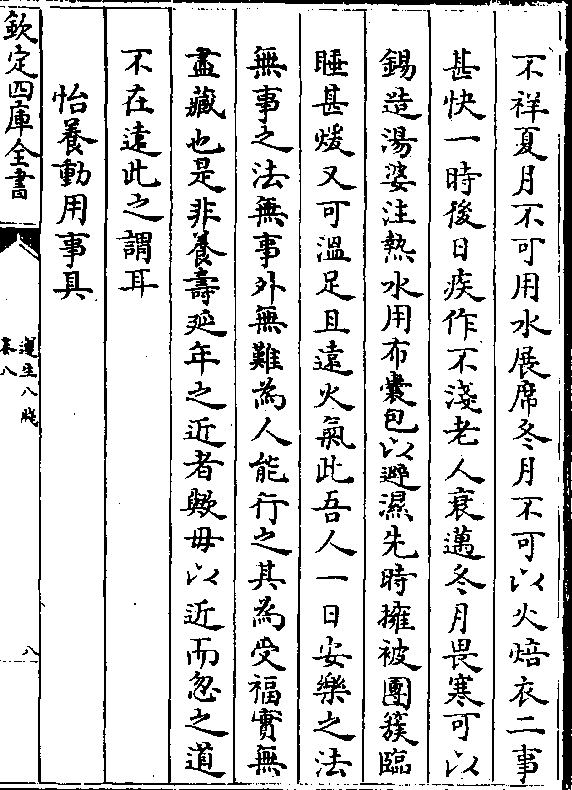 不祥夏月不可用水展席冬月不可以火焙衣二事
甚快一時後日疾作不淺老人衰邁冬月畏寒可以
錫造湯婆注熱水用布囊包以避濕先時擁被團簇臨
睡甚煖又可溫足且遠火氣此吾人一日安樂之法
無事之法無事外無難為人能行之其為受福實無
盡藏也是非養壽延年之近者歟毋以近而忽之道
不在遠此之謂耳
怡養動用事具
欽定四庫全書
遵生八牋
卷八
八